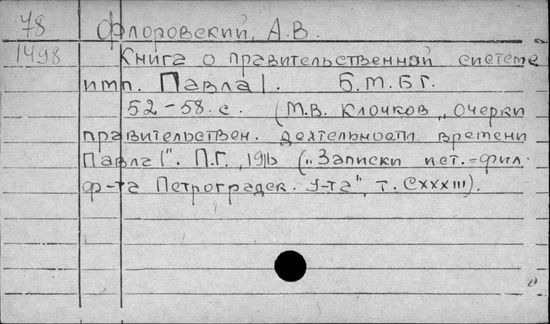 78 Флоровский, А.В.
1498 Книга о правительственной системе
имп. Павла I. Б.М.БГ.
52-58. с. (М.В. Клочков „Очерки
правительствен. деятельности времени
Павла I". П.Г., 1916 („Записки ист.-фил.
ф-та Петроградск. у-та", т. СXXXIII).